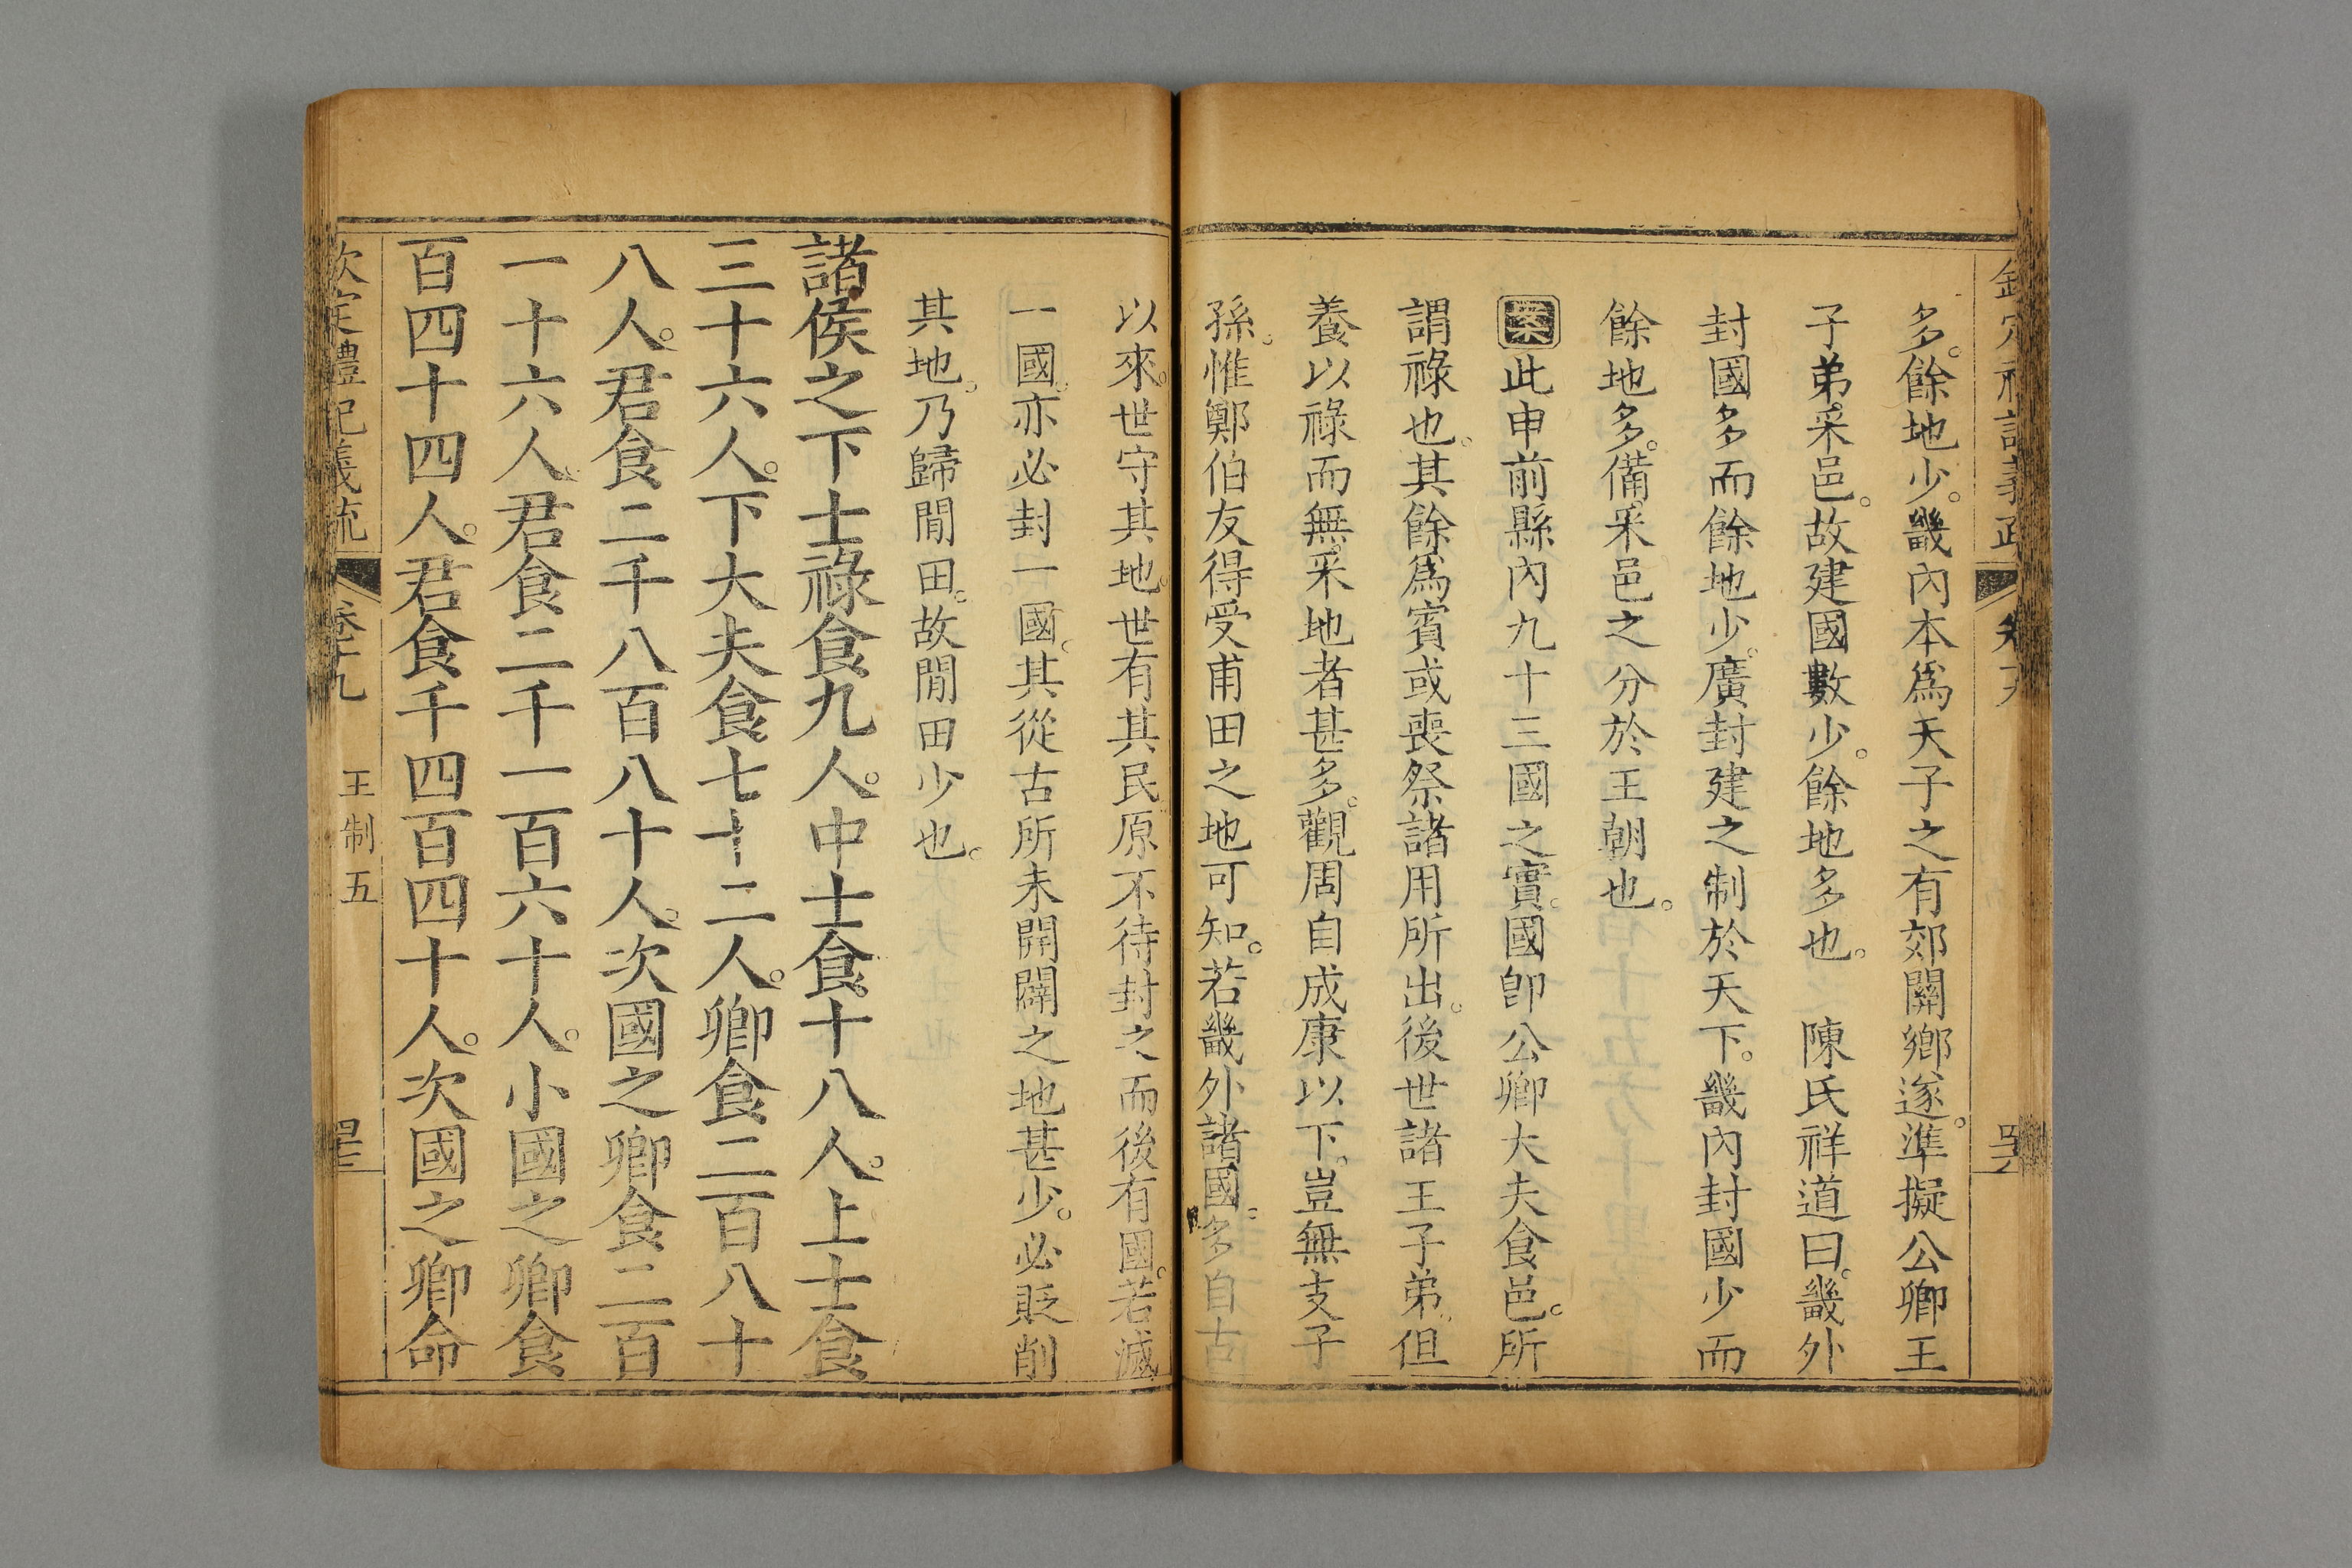 多。餘地少。畿內本爲天子之有郊關鄉遂。準擬公卿王
子弟。采邑。故建國數少。餘地多也。 陳氏祥道曰。畿外
封國多而餘地少。廣封建之制於天下。畿內封國少而
餘地多。備采邑之分於王朝也。
案此申前縣內九十三國之實。國卽公卿大夫食邑。所
謂祿也。其餘爲賓或喪祭諸用所出。後世諸王子弟。但
養以祿而無采地者甚多。觀周自成康以下。豈無支子
孫。惟鄭伯友得受甫田之地可知。若畿外諸國。多自古
以來。世守其地。世有其民。原不待封之而後有國。若滅
一國。亦必封一國。其從古所未開闢之地甚少。必貶削
其地。乃歸閒田。故閒田少也。
諸侯之下士祿食九人。中士食十八人。上士食
三十六人。下大夫食七十二人。卿食二百八十
八人。君食二千八百八十人。次國之卿食二百
一十六人。君食二千一百六十人。小國之卿食
百四十四人。君食千四百四十人。次國之卿命
欽定禮記義疏 卷十九 王制五